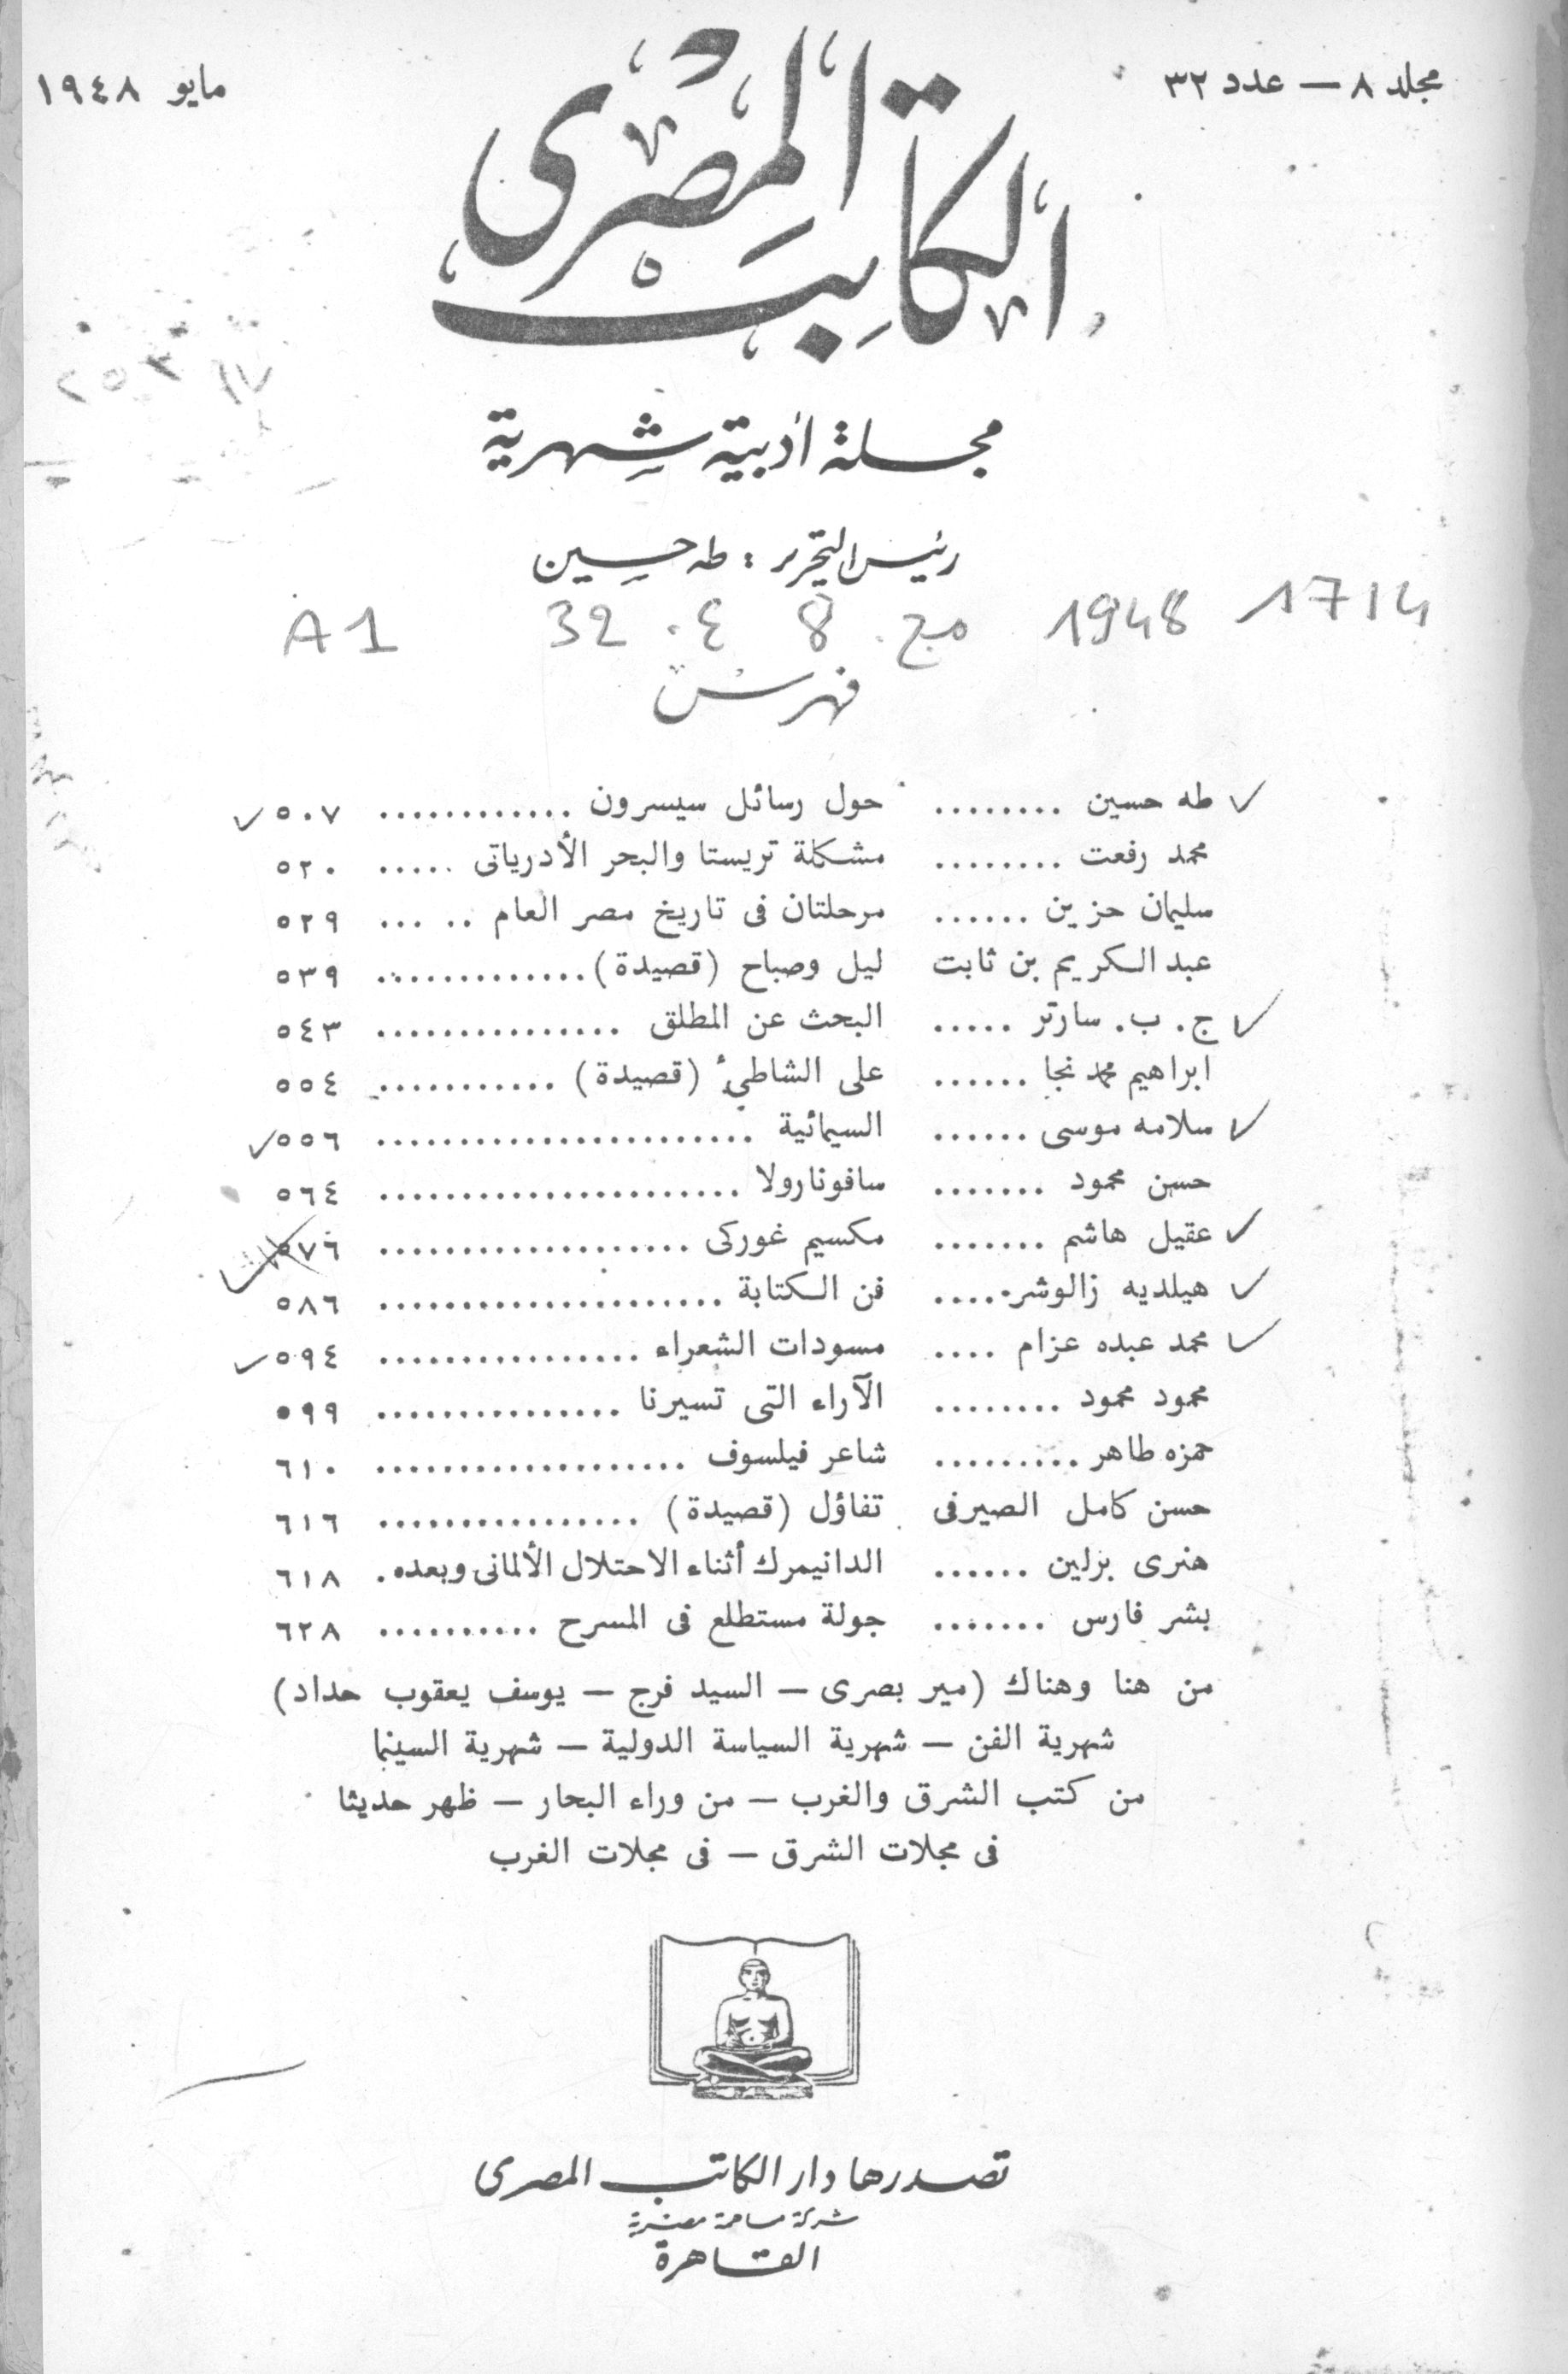 مجلد ٨ — عدد ٣٢
مايو ١٩٤٨
الكاتب المصرى
مجلة أدبية شهرية
رئيس التحرير : طه حسين
1714 1948 مج. 8 ع. 32 A1
فهرس
طه حسين ........ حول رسائل سيسرون ............ ٥٠٧
محمد رفعت ........ مشكلة تريستا والبحر الأدرياتى ..... ٥٢٠
سليمان حزين ...... مرحلتان فى تاريخ مصر العام .. ... ٥٢٩
عبد الكريم بن ثابت ليل وصباح (قصيدة) ............. ٥٣٩
ج. ب. سارتر ..... البحث عن المطلق ............... ٥٤٣
ابراهيم محمد نجا ...... على الشاطئ (قصيدة) ........... ٥٥٤
سلامه موسى ...... السيمائية ........................ ٥٥٦
حسن محمود ....... سافونارولا ....................... ٥٦٤
عقيل هاشم ....... مكسيم غوركى .................... ٥٧٦
هيلديه زالوشر ..... فن الكتابة ...................... ٥٨٦
محمد عبده عزام .... مسودات الشعراء ................ ٥٩٤
محمود محمود ........ الآراء التى تسيرنا ............... ٥٩٩
حمزه طاهر ......... شاعر فيلسوف .................... ٦١٠
حسن كامل الصيرفى تفاؤل (قصيدة) ................ ٦١٦
هنرى بزلين ...... الدانيمرك أثناء الاحتلال الألمانى وبعده . ٦١٨
بشر فارس ....... جولة مستطلع فى المسرح .......... ٦٢٨
من هنا وهناك (مير بصرى — السيد فرج — يوسف يعقوب حداد)
شهرية الفن — شهرية السياسة الدولية — شهرية السينما
من كتب الشرق والغرب — من وراء البحار — ظهر حديثا
فى مجلات الشرق — فى مجلات الغرب
تصدرها دار الكاتب المصرى
شركة مساهمة مصرية
القاهرة